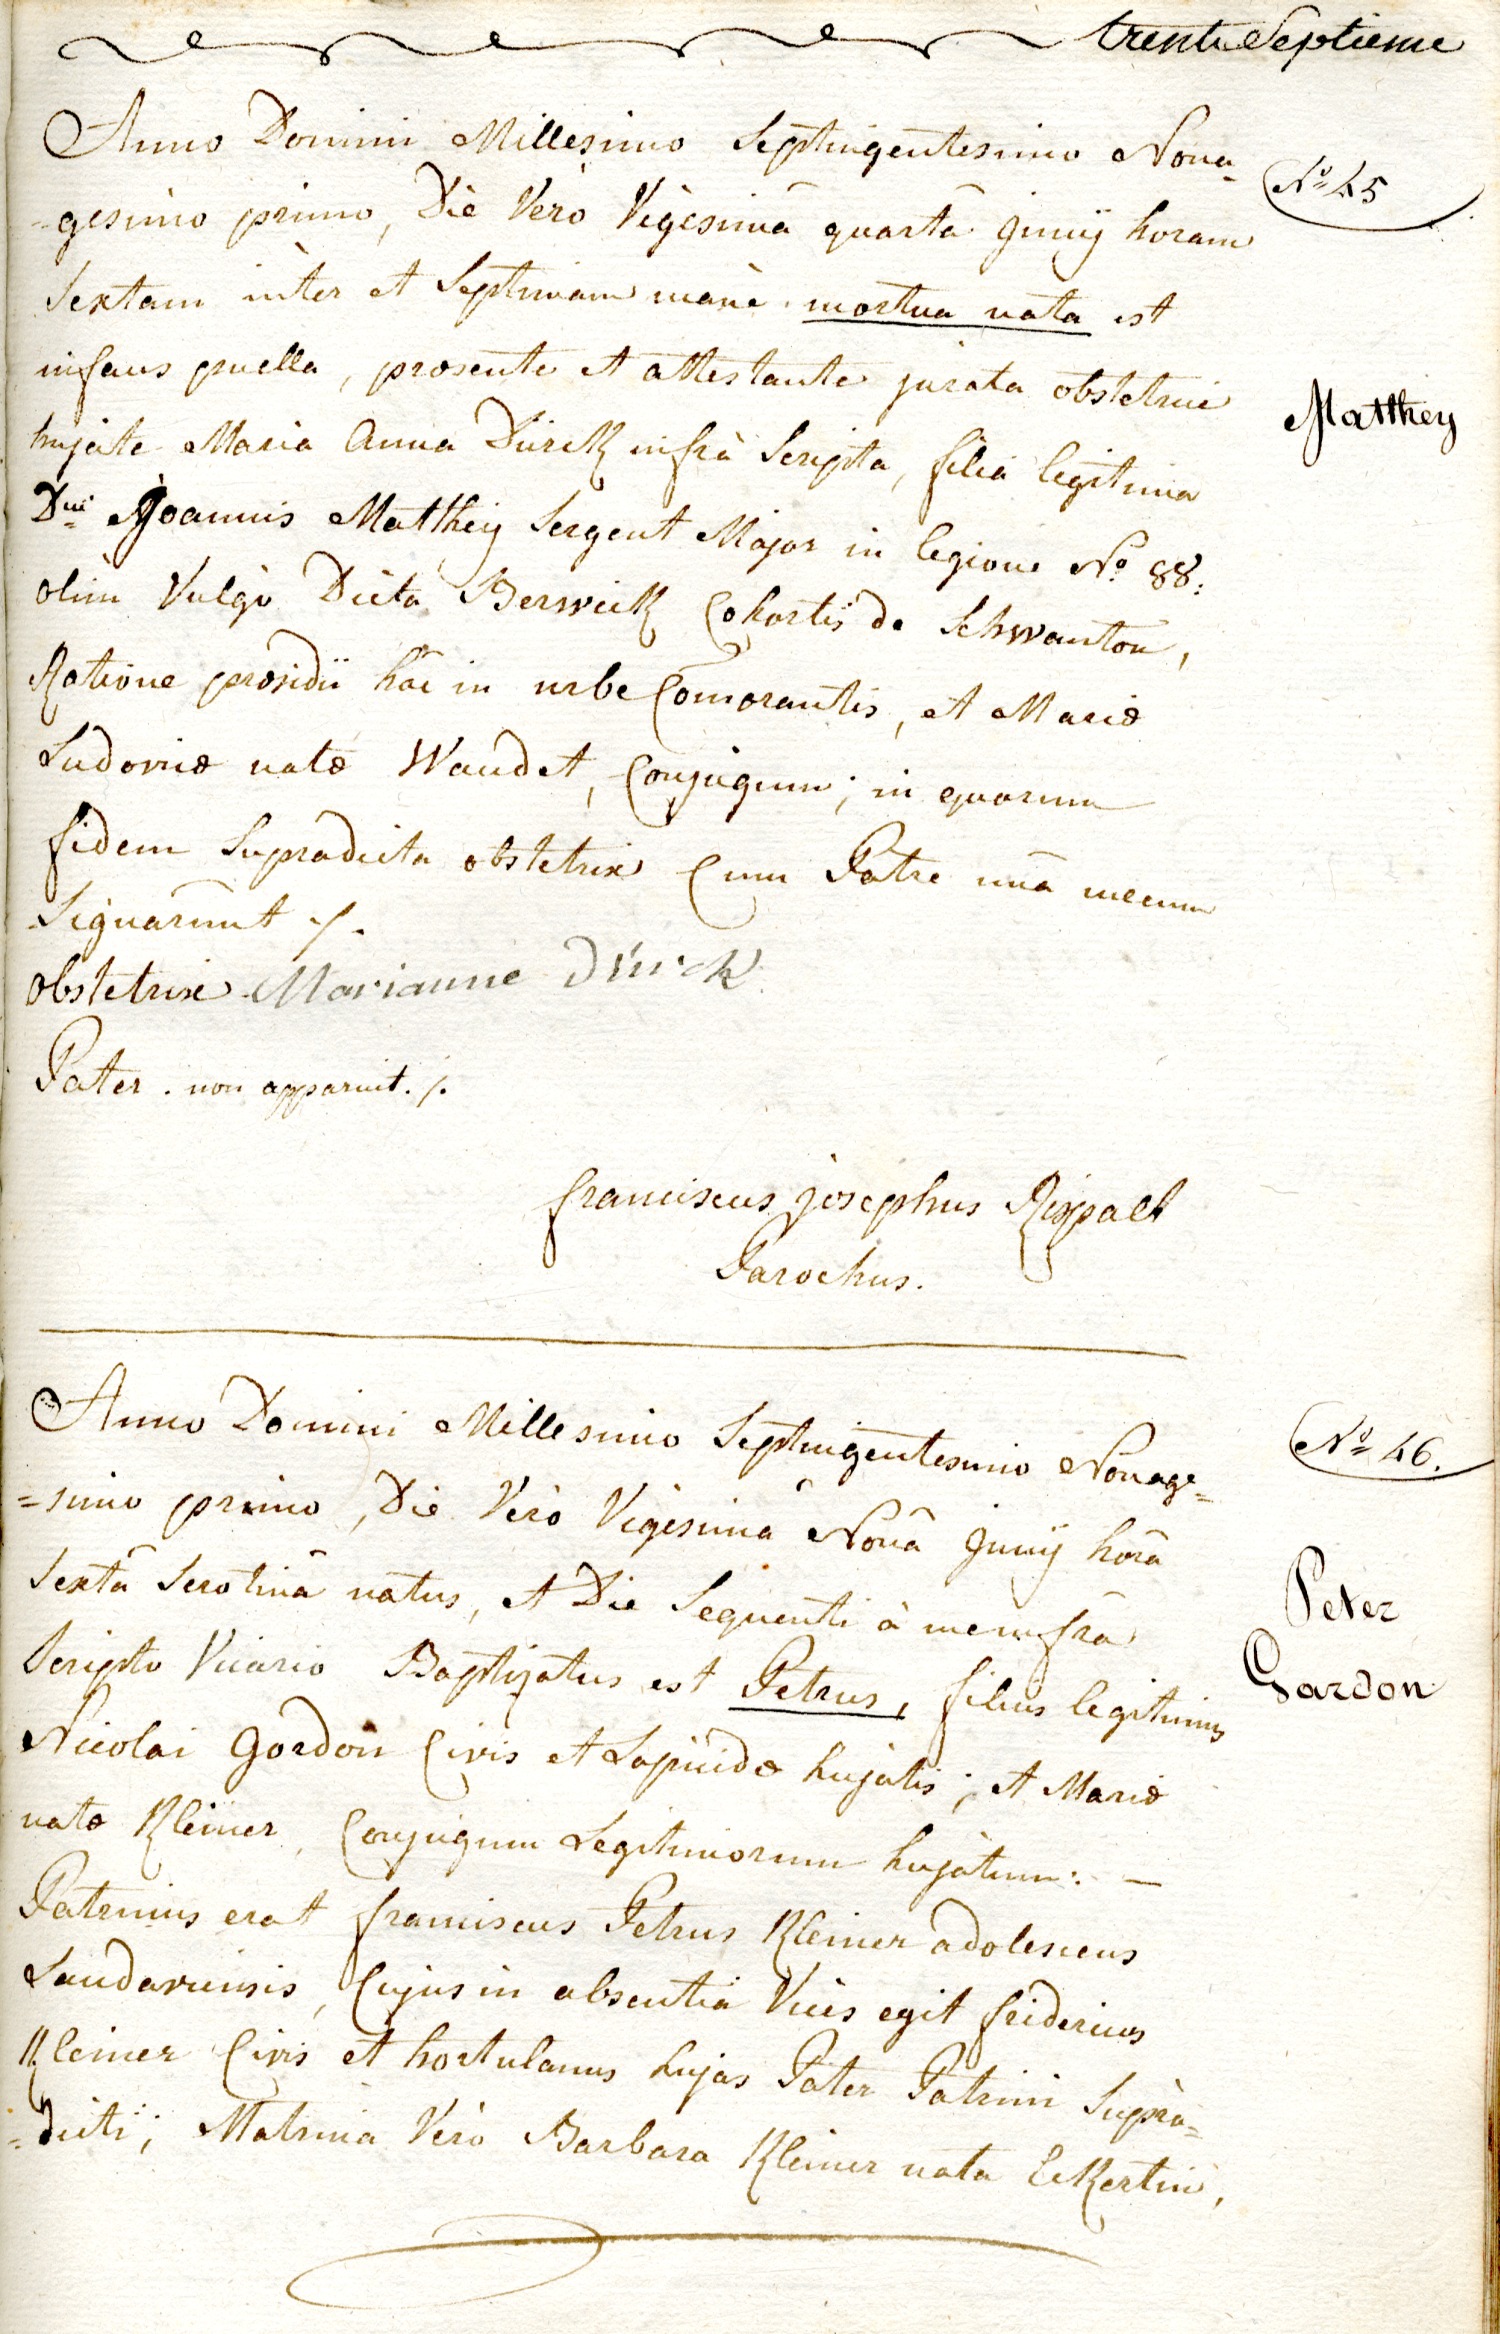 trente Septieme
Anno Domini Millesimo Septingentesimo Nona-
-gesimo primo, Die Verò Vigesimâ quartâ Junij horam
Sextam intèr et Septimam manè mortua nata est
infans puella, præsente et attestante jurata obstetrice
hujate Maria Anna Dürck infrà Scripta, filia legitima
Dni Joannis Matthey Sergent Major in legione No 88.
olim Vulgò Dicta Berwick Cohortis de Schwanton,
Ratione præsidii hâc in urbe Comorantis, et Mariæ
Ludovicæ natæ Waudet, Conjugum; in quorum
fidem Supradicta obstetrix Cum Patre unâ mecum
Signarunt ./.
obstetrix Marianne Dürck
Pater . non apparuit. ./.
franciscus josephus Rixpaet
Parochus.
No 45
Matthey
Anno Domini Millesimo Septingentesimo Nonage=
=simo primo, Die Verò Vigesimâ Nonâ Junij horâ
Sextâ Serotinâ natus, et Die Sequenti à me infrà
Scripto Vicario Baptizatus est Petrus, filius legitimus
Nicolai Gordon Civis et Lapicidæ hujatis; et Mariæ
natæ Kleiner, Conjugum Legitimorum hujatum: —
Patrinus erat franciscus Petrus Kleiner adolescens
Landaviensis, Cujus in absentia Vices egit fridericus
Kleiner Civis et hortulanus hujas Pater Patrini Supra=
=dicti; Matrina Verò Barbara Kleiner nata Eckertin,
No 46.
Peter
Gardon